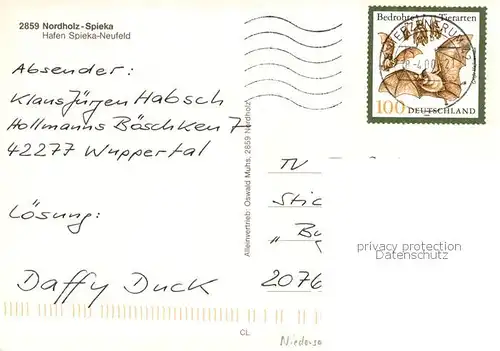 2859 Nordholz-Spieka
Hafen Spieka-Neufeld
Bedrohte Tierarten
100 DEUTSCHLAND
Absender:
Klaus Jürgen Habsch
Hollmanns Böschken 7
42277 Wuppertal
Lösung:
Daffy Duck
Alleinvertrieb: Oswald Muhs, 2859 Nordholz
TV
Stic
„Bu
2076
privacy protection
Datenschutz
CL
Niedersa